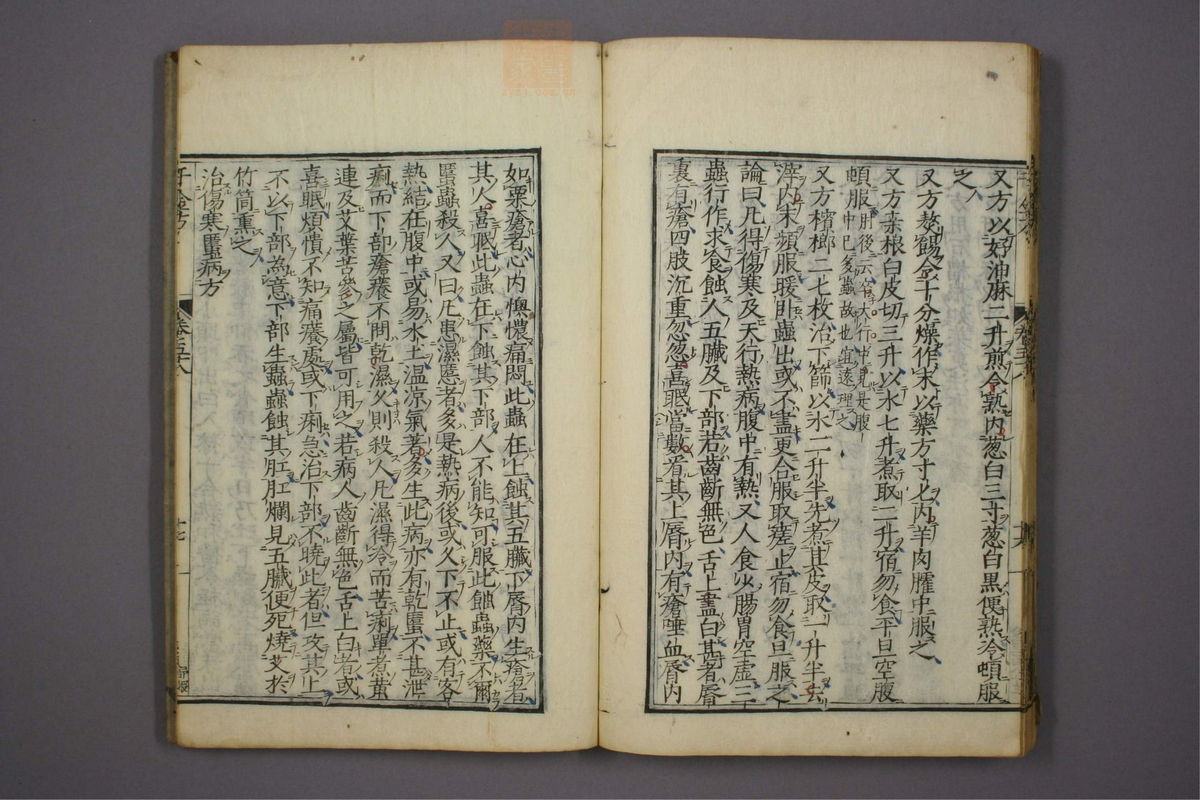 又方以好油麻二升煎令熟內葱白三寸葱白黒便熟冷頓服
之
又方熬錫令十分燥作末以藥方寸匕內羊肉臛中服之
又方桒根白皮切三升以水七升煮取二升宿勿食平旦空腹
頓服肘後云宜大行中見是腹
中已多蟲故也宜速理之
又方檳榔二七枚治下篩以水二升半先煮其皮取一升半去
滓內末頻服暖卧蟲出或不盡更合服取瘥止宿勿食旦服之
論曰凡得傷寒及天行熱病腹中有熱又人食少腸胃空虛三
蟲行作求食蝕人五臟及下部若齒齗無色舌上盡白甚者脣
裏有瘡四肢沉重忽忽喜眠當數看其上脣內有瘡唾血脣內
如粟瘡者心內懊憹痛悶此蟲在上蝕其五臟下脣內生瘡者
其人喜眠此蟲在下蝕其下部人不能知可服此蝕蟲藥不爾
䘌蟲殺人又曰凡患濕䘌者多是熱病後或久下不止或有客
熱結在腹中或易水土溫凉氣著多生此病亦有乾䘌不甚泄
痢而下部瘡癢不問乾濕久則殺人凡濕得冷而苦痢單煮黃
連及艾葉苦參之屬皆可用之若病人齒齗無色舌上白者或
喜眠煩憒不知痛癢處或下痢急治下部不曉此者但攻其上
不以下部為意下部生蟲蟲蝕其肛肛爛見五臟便死燒艾於
竹筒熏之
治傷寒䘌病方